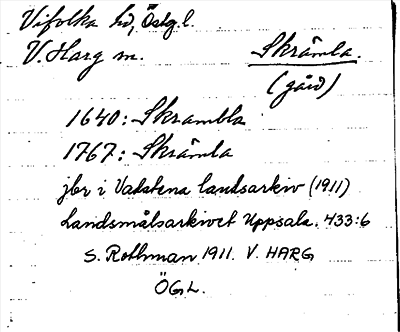 Vifolka hd, Östg.l.
V. Harg sn. Skråmla.
(gård)
1640: Skrambla
1767: Skråmla
jbr i Vadstena landsarkiv (1911)
Landsmålsarkivet Uppsala. 433:6
S. Rothman 1911. V. HARG
ÖGL.